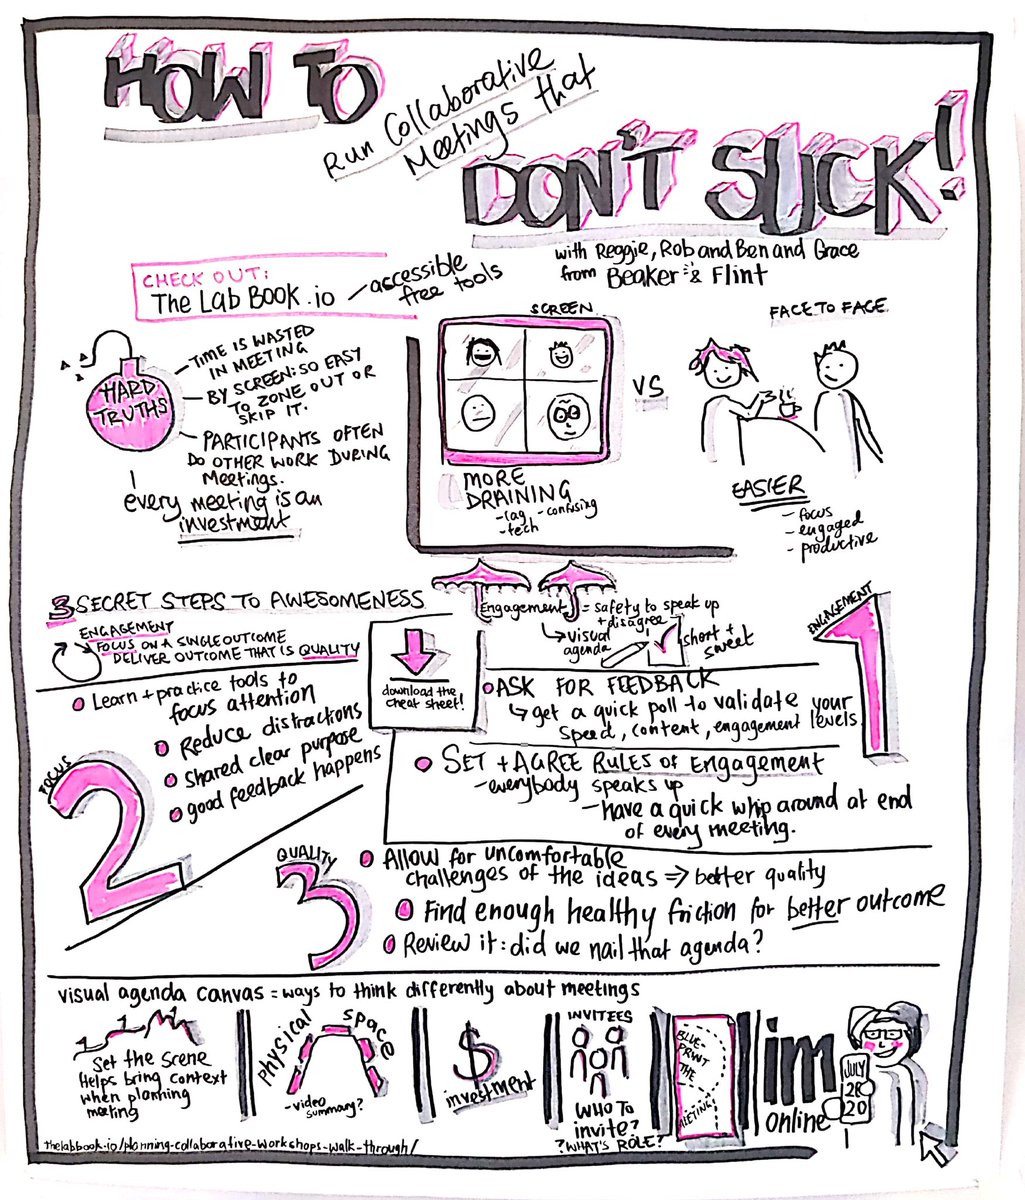 HOW TO
Run Collaborative
Meetings that
DON'T SUCK!
with Reggie, Rob and Ben and Grace
from Beaker & Flint
CHECK OUT:
The Lab Book.io – accessible
free tools
HARD
TRUTHS
- TIME IS WASTED
IN MEETING
- BY SCREEN: SO EASY
TO ZONE OUT OR
SKIP IT.
- PARTICIPANTS OFTEN
DO OTHER WORK DURING
Meetings.
every meeting is an
investment
SCREEN
MORE
DRAINING
- lag - confusing
- tech
VS
FACE TO FACE
EASIER
- focus
- engaged
- productive
3 SECRET STEPS TO AWESOMENESS
ENGAGEMENT
FOCUS ON A SINGLE OUTCOME
DELIVER OUTCOME THAT IS QUALITY
download the
cheat sheet!
Engagement = safety to speak up
+ disagree
visual
agenda
short +
sweet
ENGAGEMENT
1
ASK FOR FEEDBACK
get a quick poll to validate your
speed, content, engagement levels
SET + AGREE RULES OF ENGAGEMENT
- everybody speaks up
- have a quick whip around at end
of every meeting.
FOCUS
2
Learn + practice tools to
focus attention
Reduce distractions
shared clear purpose
good feedback happens
QUALITY
3
Allow for uncomfortable
challenges of the ideas => better quality
Find enough healthy friction for better outcome
Review it: did we nail that agenda?
visual agenda canvas = ways to think differently about meetings
Set the scene
Helps bring context
when planning
meeting
Physical space
- video
summary?
$
investment
INVITEES
WHO TO
invite?
? WHAT'S ROLE?
BLUE-
PRINT
THE
MEETING!
im
online
JULY
28
20
thelabbook.io/planning-collaborative-workshops-walk-through/